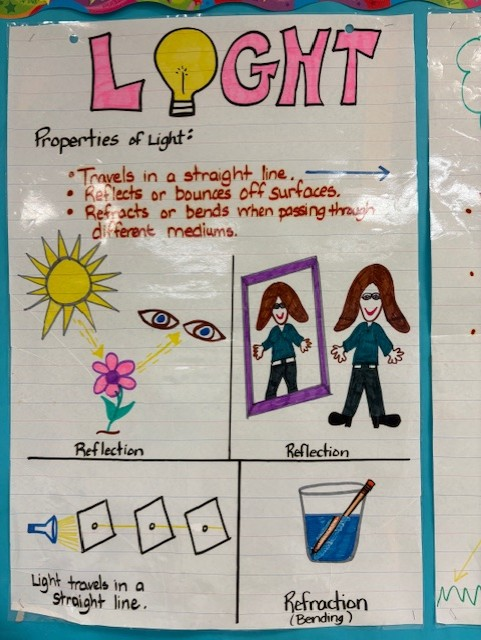 LIGHT
Properties of Light:
• Travels in a straight line.
• Reflects or bounces off surfaces.
• Refracts or bends when passing through
different mediums.
Reflection
Reflection
Light travels in a
straight line.
Refraction
(Bending)